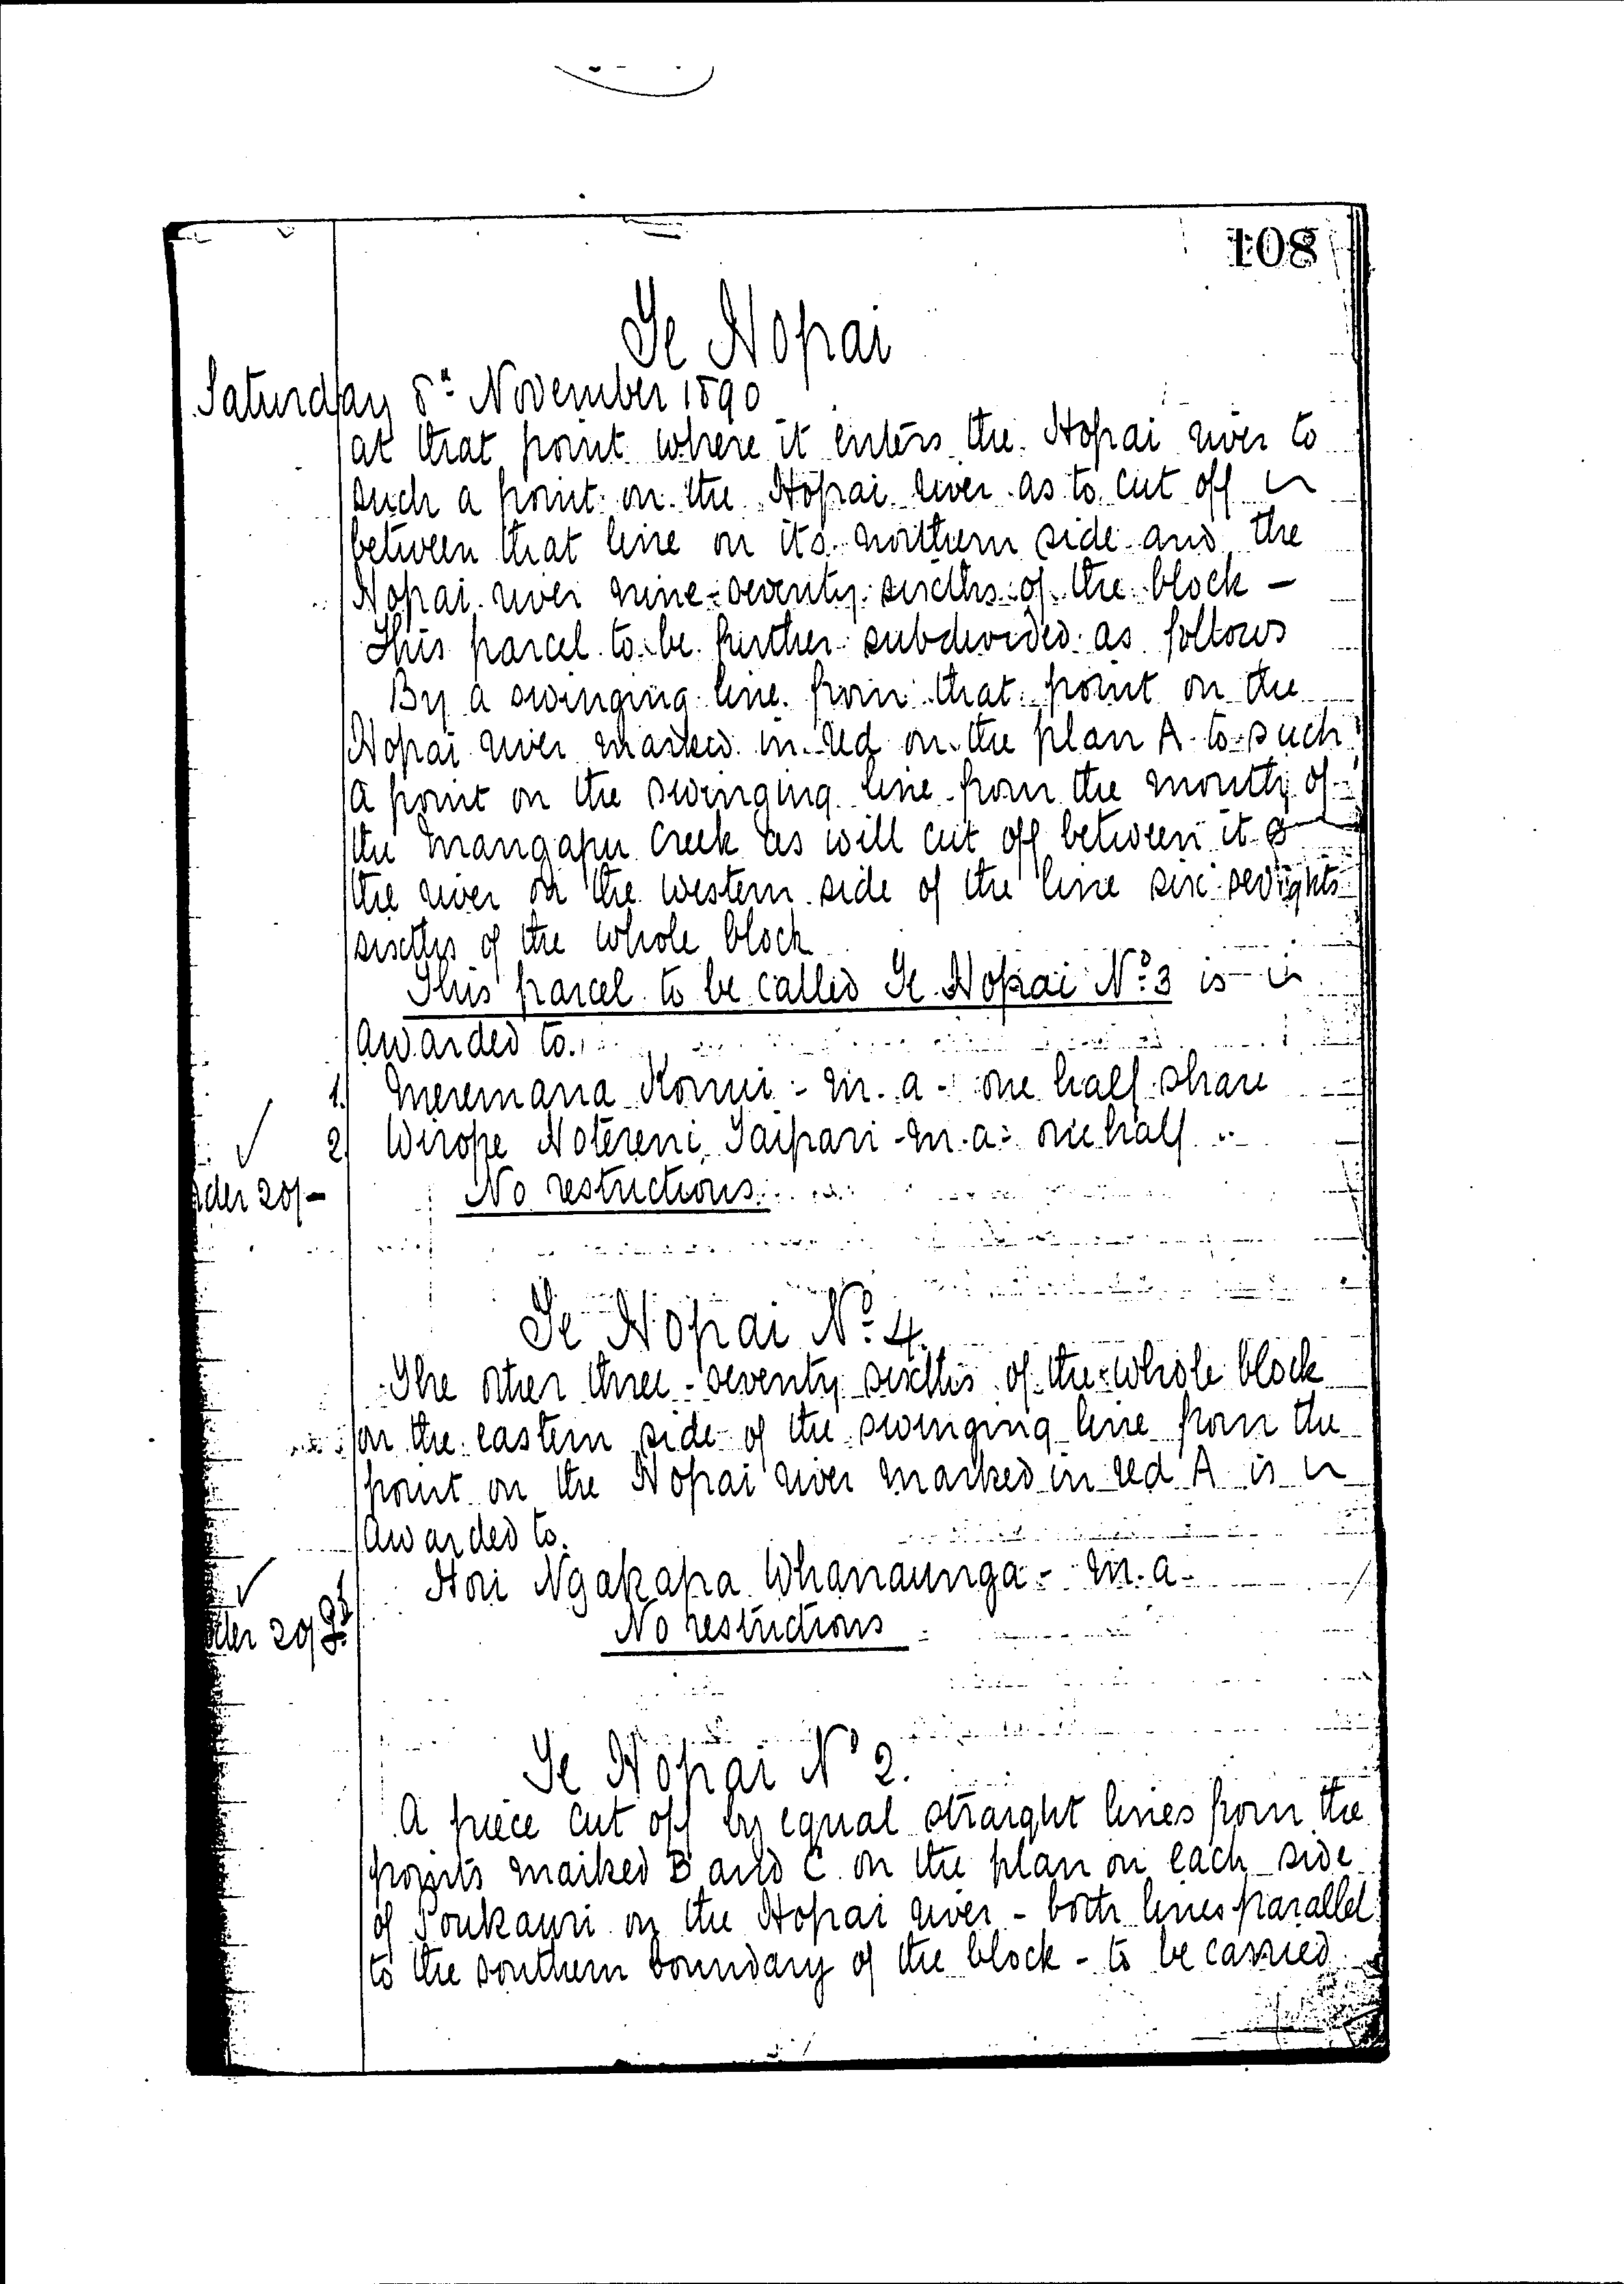 108
Te Hopai
Saturday 8th November 1890
at that point where it enters the Hopai river to
such a point on the Hopai river as to cut off
between that line on its northern side and the
Hopai river nine-seventy sixths of the block -
This parcel to be further subdivided as follows
By a swinging line from that point on the
Hopai river marked in red on the plan A to such
a point on the swinging line from the mouth of
the Mangapu Creek as will cut off between it &
the river on the western side of the line six
sixths of the whole block
This parcel to be called Te Hopai No. 3 is
awarded to.
1. Meremana Konui - m. a - one half share
2. Wirope Hotereni Taipari - m. a - one half "
der 20/-
No restrictions
Te Hopai No. 4.
The other three-seventy sixths of the whole block
on the eastern side of the swinging line from the
point on the Hopai river marked in red A is
awarded to.
Hori Ngakapa Whanaunga - m. a -
der 20/
No restrictions
Te Hopai No 2.
A piece cut off by equal straight lines from the
points marked B and C on the plan on each side
of Poukauri on the Hopai river - both lines parallel
to the southern boundary of the block - to be carried